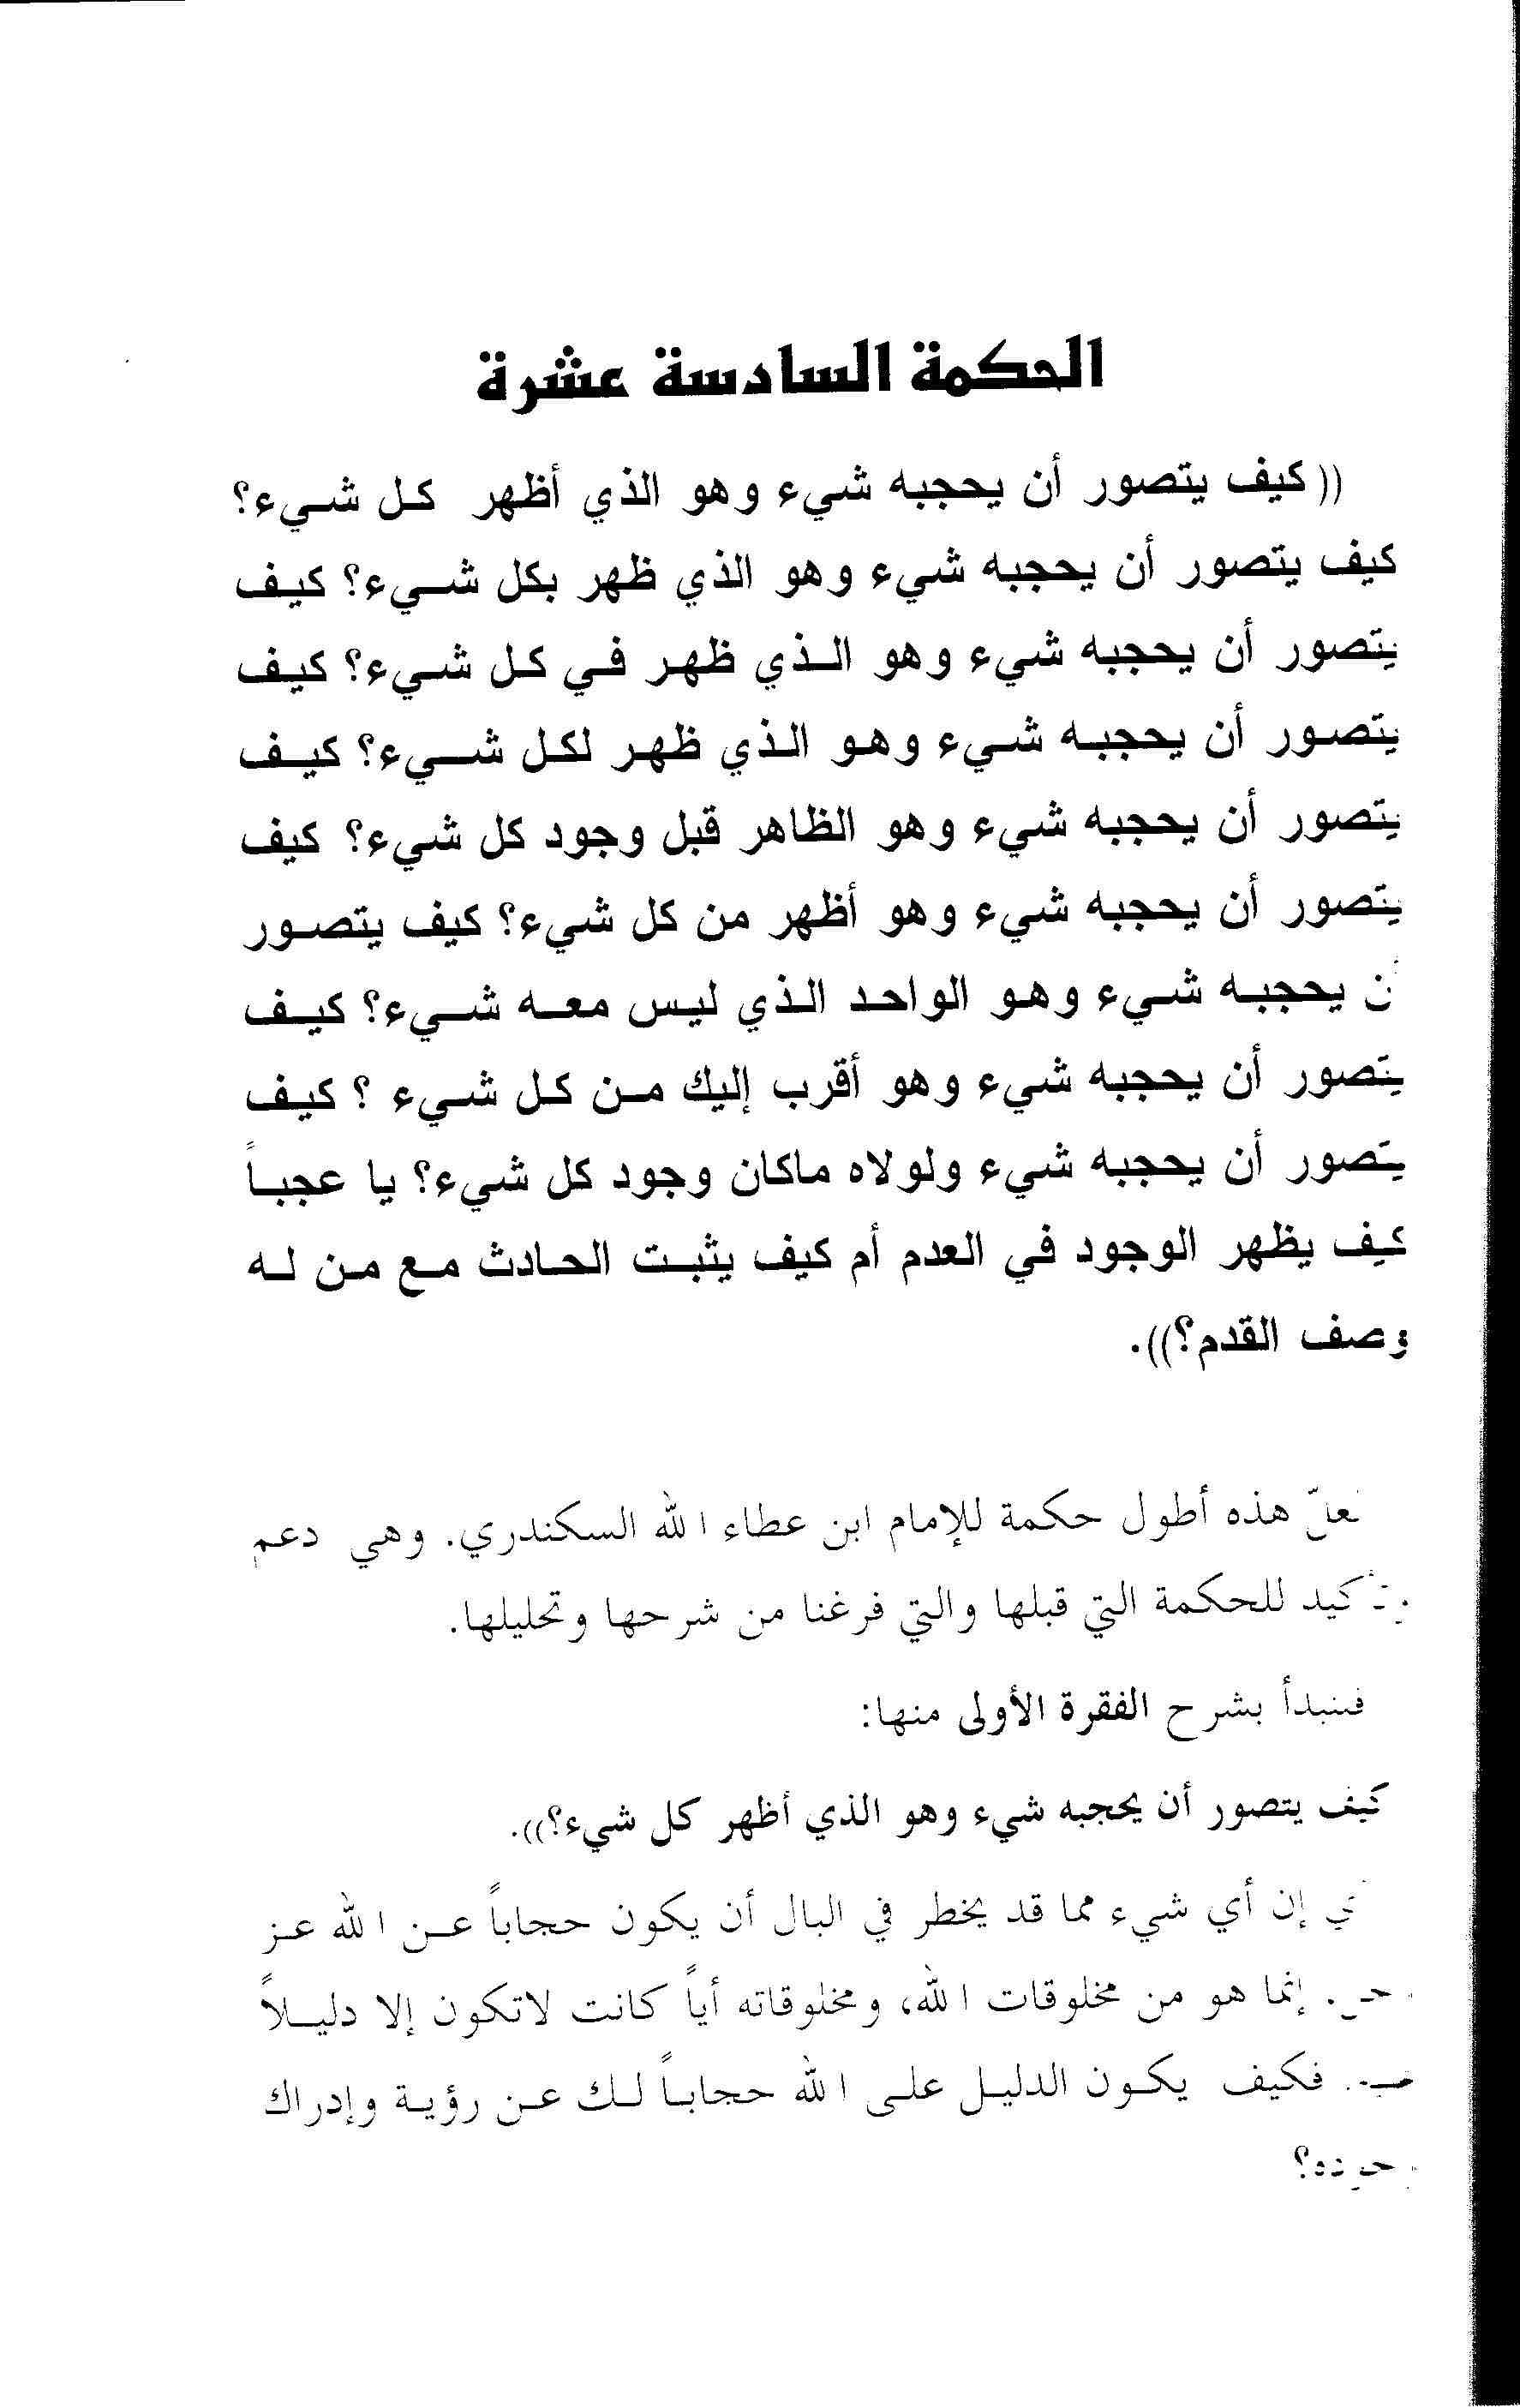 الحكمة السادسة عشرة
(( كيف يتصور أن يحجبه شيء وهو الذي أظهر كل شيء؟
كيف يتصور أن يحجبه شيء وهو الذي ظهر بكل شيء؟ كيف
يتصور أن يحجبه شيء وهو الذي ظهر في كل شيء؟ كيف
يتصور أن يحجبه شيء وهو الذي ظهر لكل شيء؟ كيف
يتصور أن يحجبه شيء وهو الظاهر قبل وجود كل شيء؟ كيف
يتصور أن يحجبه شيء وهو أظهر من كل شيء؟ كيف يتصور
أن يحجبه شيء وهو الواحد الذي ليس معه شيء؟ كيف
يتصور أن يحجبه شيء وهو أقرب إليك من كل شيء ؟ كيف
يتصور أن يحجبه شيء ولولاه ماكان وجود كل شيء؟ يا عجباً
كيف يظهر الوجود في العدم أم كيف يثبت الحادث مع من له
وصف القدم؟)).
لعلّ هذه أطول حكمة للإمام ابن عطاء الله السكندري. وهي دعم
وتأكيد للحكمة التي قبلها والتي فرغنا من شرحها وتحليلها.
فلنبدأ بشرح الفقرة الأولى منها:
كيف يتصور أن يحجبه شيء وهو الذي أظهر كل شيء؟)).
أي إن أي شيء مما قد يخطر في البال أن يكون حجاباً عن الله عز
إنما هو من مخلوقات الله، ومخلوقاته أياً كانت لاتكون إلا دليلاً
فكيف يكون الدليل على الله حجاباً لك عن رؤية وإدراك
وجوده؟